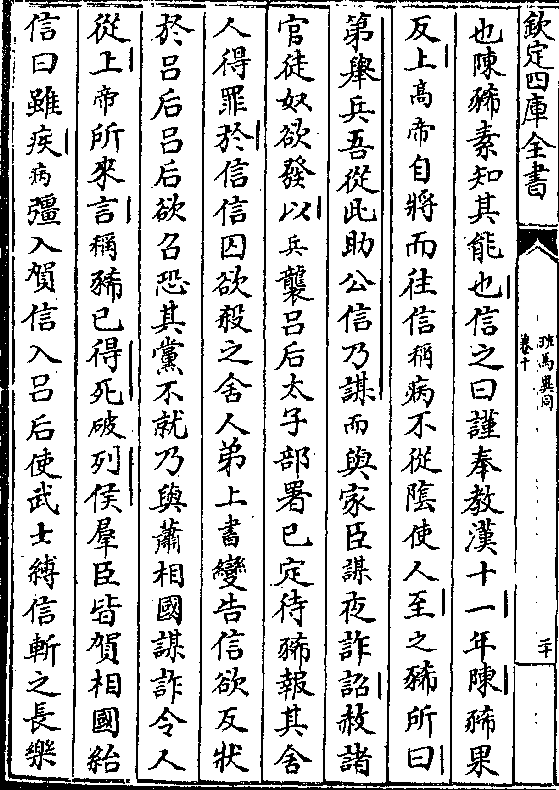 欽定四庫全書
班馬異同
卷十
二十
也陳豨素知其能也信之曰謹奉教漢十一年陳豨果
反上高帝自將而往信稱病不從陰使人至之豨所曰
第舉兵吾從此助公信乃謀而與家臣謀夜詐詔赦諸
官徒奴欲發以兵襲呂后太子部署已定待豨報其舍
人得罪於信信囚欲殺之舍人弟上書變告信欲反狀
於呂后呂后欲召恐其黨不就乃與蕭相國謀詐令人
從上帝所來言稱豨已得死破列侯羣臣皆賀相國紿
信曰雖疾病彊入賀信入呂后使武士縛信斬之長樂